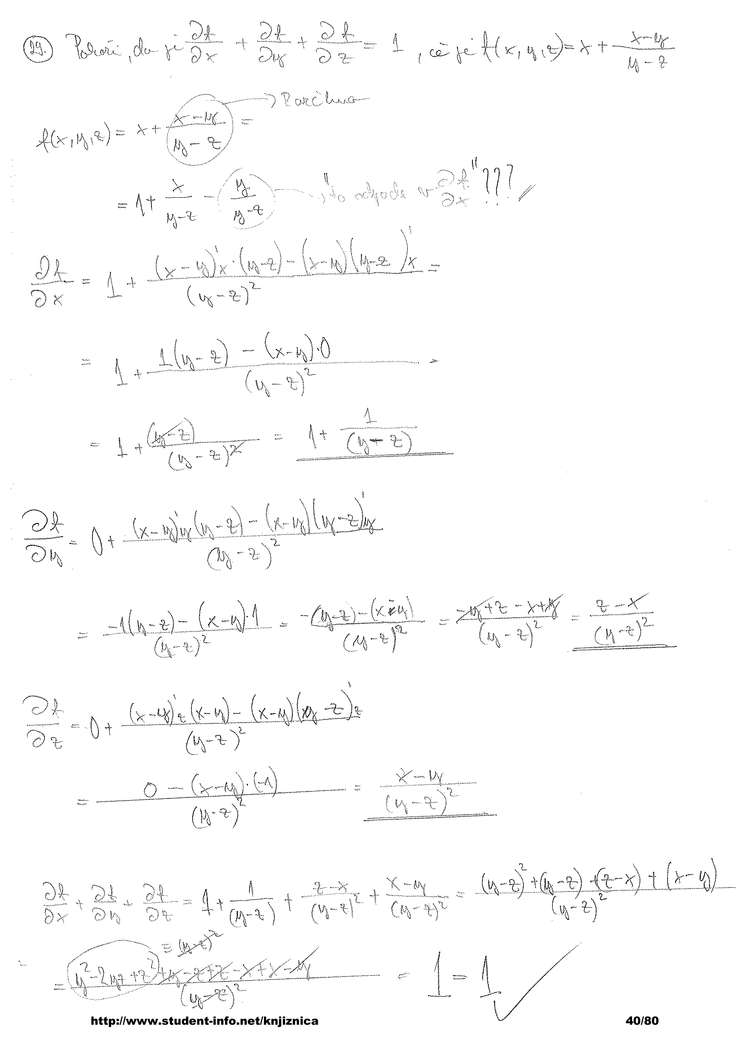 29. Pokaži, da je ∂f/∂x + ∂f/∂y + ∂f/∂z = 1, če je f(x, y, z) = x + (x-y)/(y-z)
f(x, y, z) = x + (x-y)/(y-z) =
= 1 + x/(y-z) - y/(y-z) "to odpade v ∂f/∂x" ???
∂f/∂x = 1 + ((x-y)'x · (y-z) - (x-y)(y-z)'x)/(y-z)² =
= 1 + (1(y-z) - (x-y)·0)/(y-z)²
= 1 + (y-z)/(y-z)² = 1 + 1/(y-z)
∂f/∂y = 0 + ((x-y)'y (y-z) - (x-y)(y-z)'y)/(y-z)²
= (-1(y-z) - (x-y)·1)/(y-z)² = (-(y-z) - (x-y))/(y-z)² = (-y+z-x+y)/(y-z)² = (z-x)/(y-z)²
∂f/∂z = 0 + ((x-y)'z (x-y) - (x-y)(y-z)'z)/(y-z)²
= (0 - (x-y)·(-1))/(y-z)² = (x-y)/(y-z)²
∂f/∂x + ∂f/∂y + ∂f/∂z = 1 + 1/(y-z) + (z-x)/(y-z)² + (x-y)/(y-z)² = ((y-z)² + (y-z) + (z-x) + (x-y))/(y-z)²
= (y-z)²
= (y² - 2yz + z² + y - z + z - x + x - y)/(y-z)² = 1 = 1 ✓
http://www.student-info.net/knjiznica 40/80